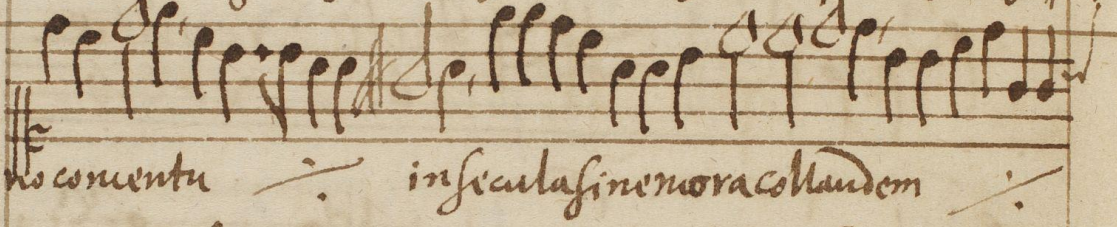 no conventu ⁒ in secula sine mora collaudem ⁒